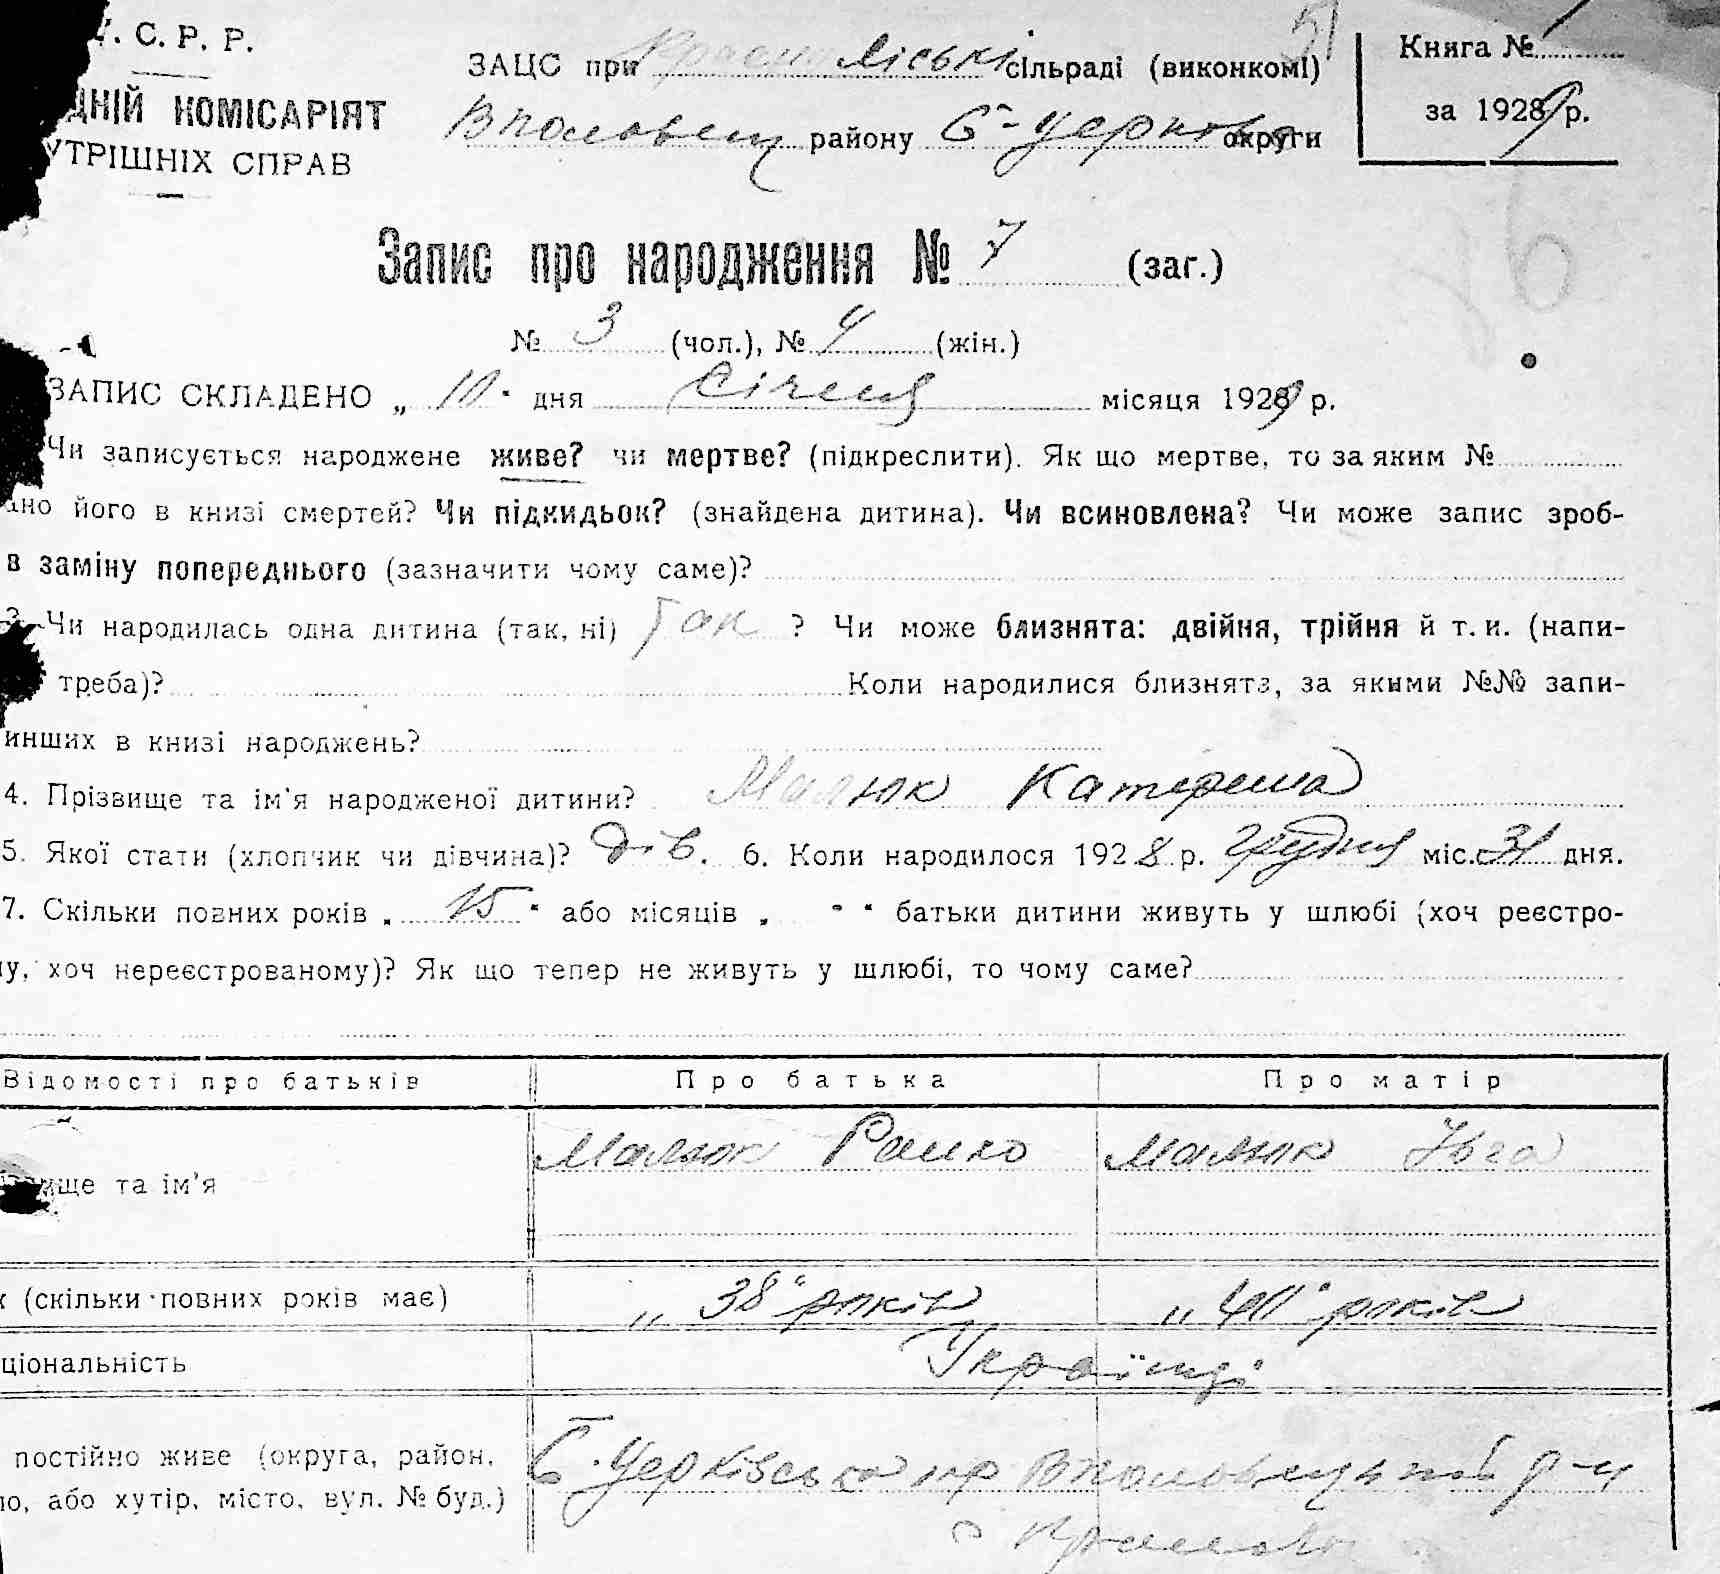 У. С. Р. Р.
ЗАЦС при ліські сільраді (виконкомі)
Книга №
ДНІЙ КОМІСАРІЯТ
району Б-Церков округи
за 1929 р.
УТРІШНІХ СПРАВ
Запис про народження № 7 (заг.)
№ 3 (чол.), № 4 (жін.)
ЗАПИС СКЛАДЕНО „ 10 " дня Січня місяця 1929 р.
Чи записується народжене живе? чи мертве? (підкреслити). Як що мертве, то за яким №
ано його в книзі смертей? Чи підкидьок? (знайдена дитина). Чи всиновлена? Чи може запис зроб-
в заміну попереднього (зазначити чому саме)?
3. Чи народилась одна дитина (так, ні) Так ? Чи може близнята: двійня, трійня й т. и. (напи-
треба)? Коли народилися близнята, за якими №№ запи-
инших в книзі народжень?
4. Прізвище та ім'я народженої дитини? Малюк Катерина
5. Якої стати (хлопчик чи дівчина)? дів. 6. Коли народилося 1928 р. грудня міс. 31 дня.
7. Скільки повних років „ 15 " або місяців „ " батьки дитини живуть у шлюбі (хоч реєстро-
у, хоч нереєстрованому)? Як що тепер не живуть у шлюбі, то чому саме?
Відомості про батьків Про батька Про матір
Малюк Малюк Ївга
ище та ім'я
к (скільки повних років має) „ 38 " років „ 40 " років
ціональність Українці
постійно живе (округа, район, Б. Церківська
ло, або хутір, місто, вул. № буд.)